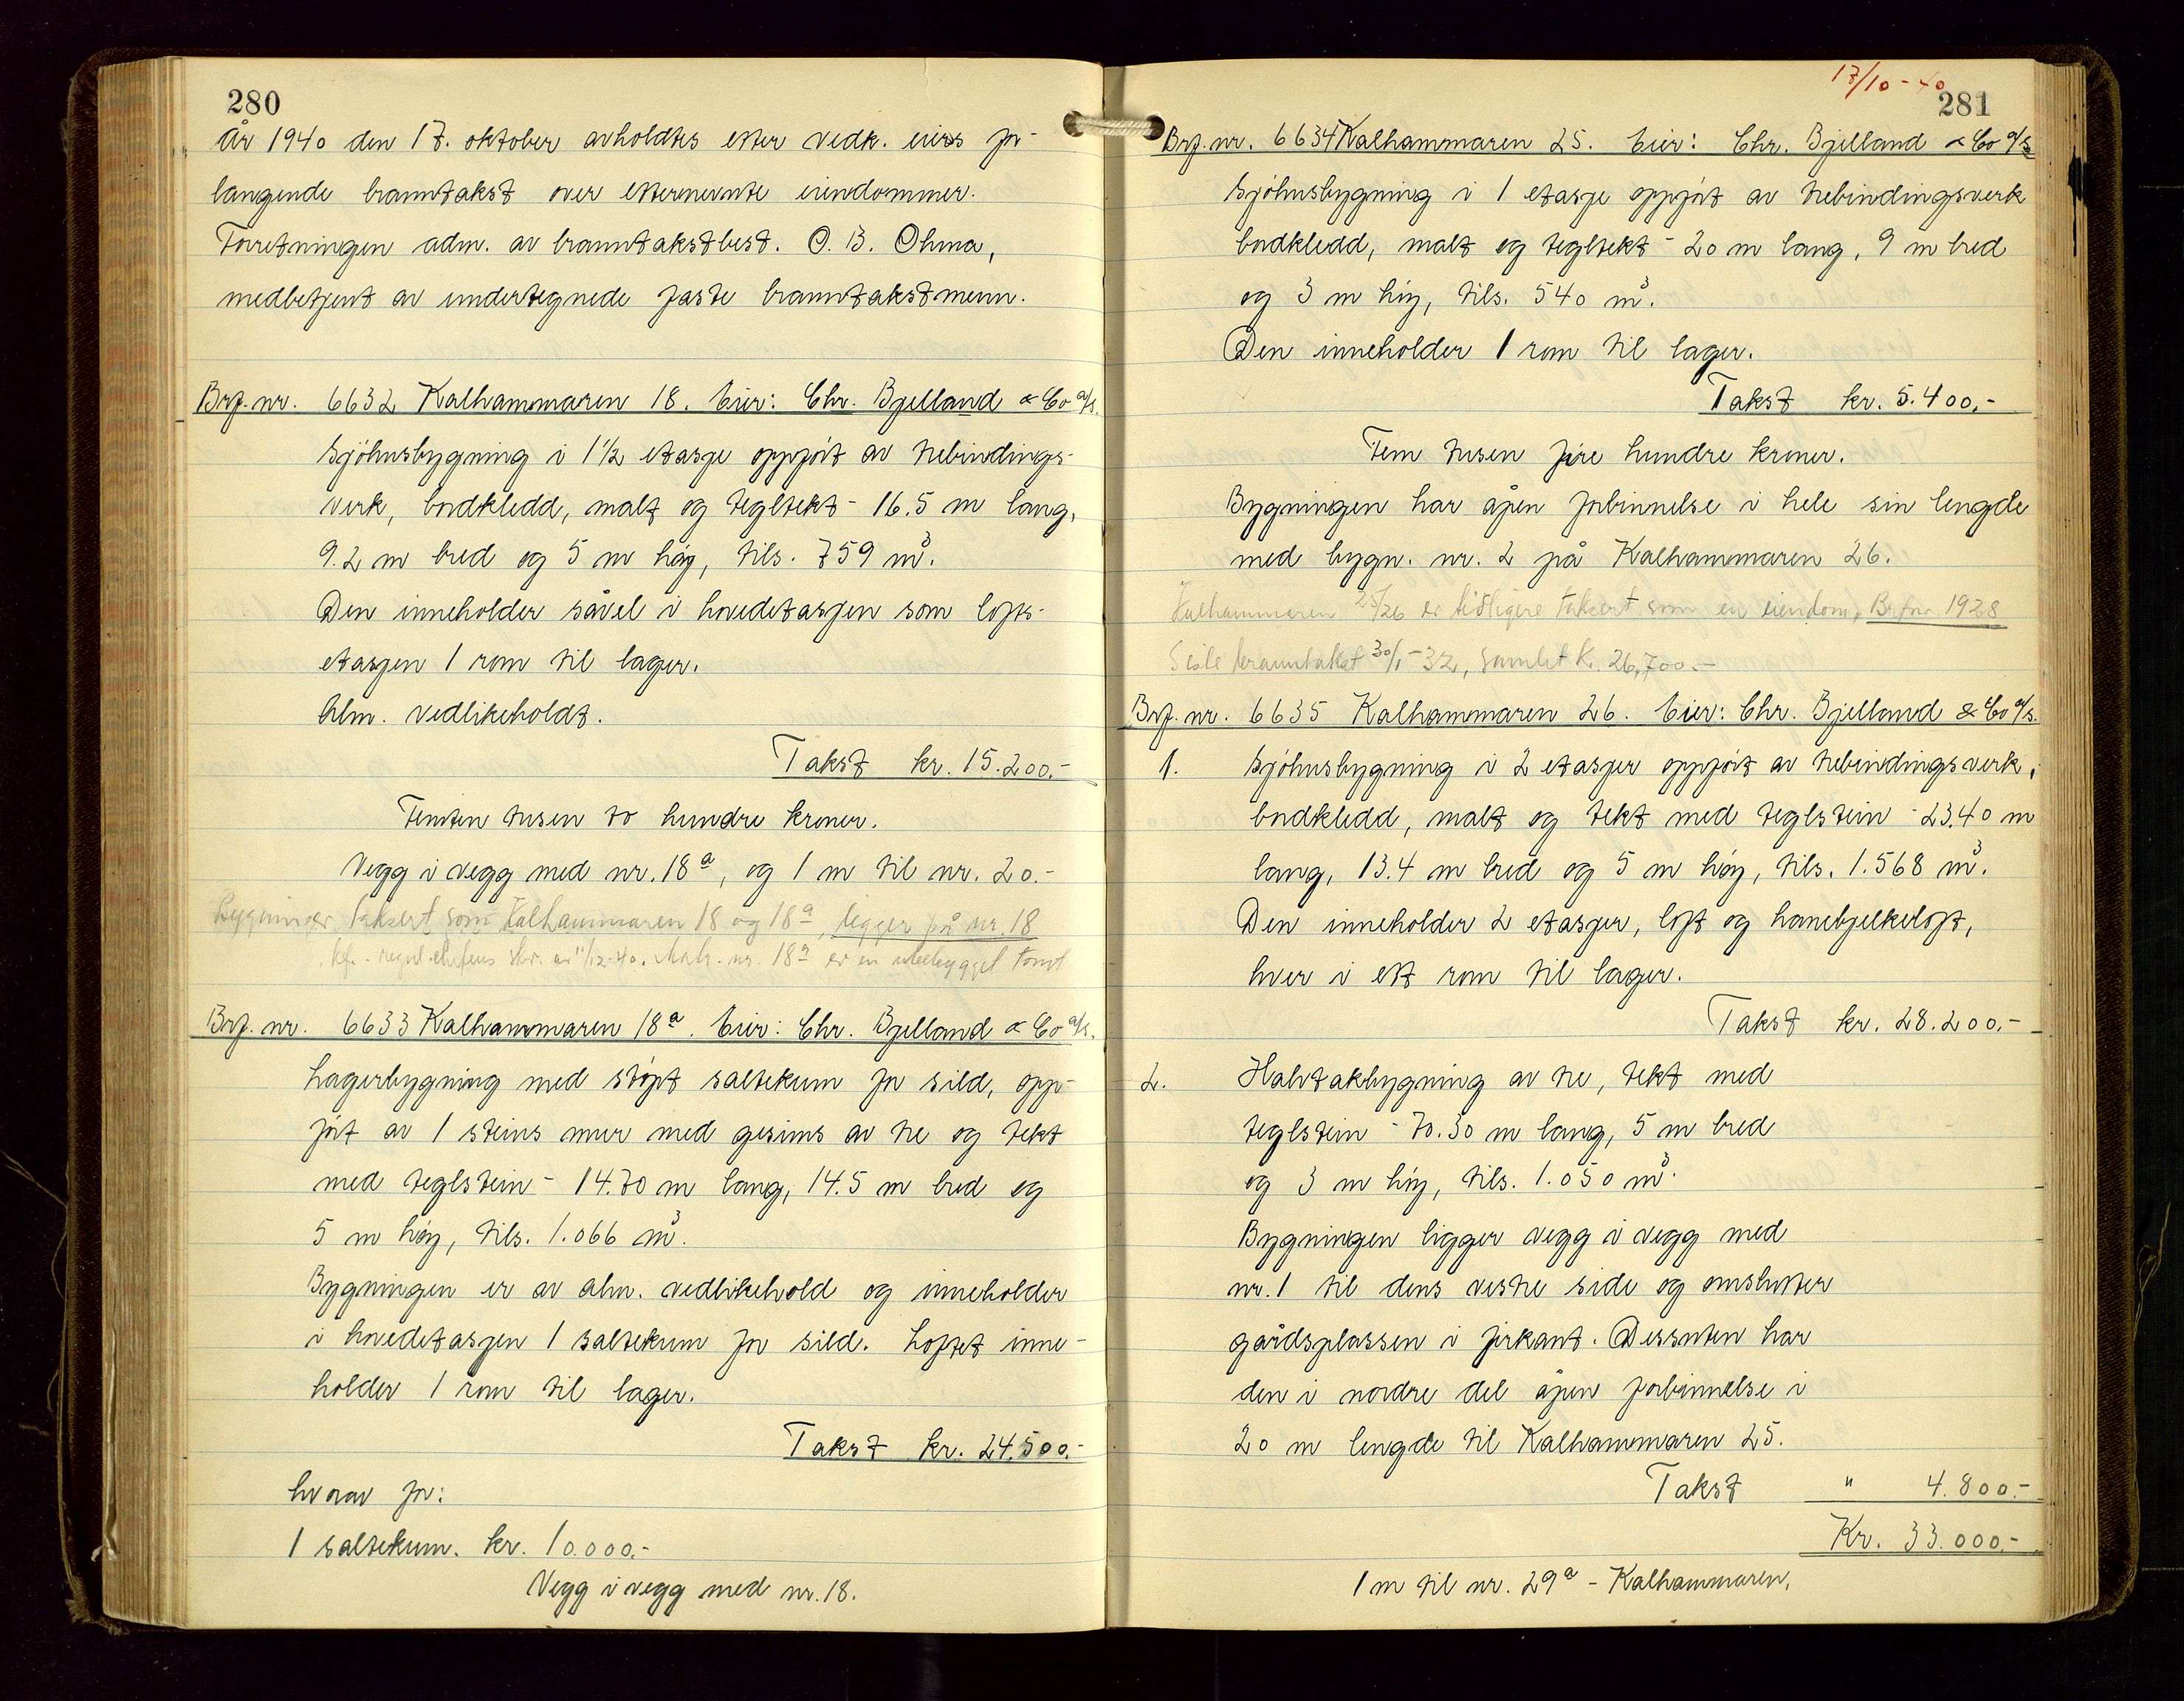 280
År 1940 den 17. oktober avholdtes efter vedk. eiers for-
langende branntakst over efternevnte eiendommer.
Forretningen adm. av branntakstbest. O. B. Ohma,
medbetjent av undertegnede faste branntakstmenn.
Brf. nr. 6632 Kalhammaren 18. Eier: Chr. Bjelland & Co a/s.
Sjöhusbygning i 1 1/2 etasje oppfört av trebindings-
verk, bordkledd, malt og tegltekt - 16.5 m lang,
9.2 m bred og 5 m höy, tils. 759 m³.
Den inneholder såvel i hovedetasjen som lofts-
etasjen 1 rom til lager.
Alm. vedlikeholdt.
Takst kr. 15.200.-
Femten tusen to hundre kroner.
Vegg i vegg med nr. 18a, og 1 m til nr. 20.-
Bygninger taksert som Kalhammaren 18 og 18a, ligger på nr. 18
kfr. regul.chefens skr. av 11/12-40. Matr. nr. 18a er en ubebygget tomt
Brf. nr. 6633 Kalhammaren 18a. Eier: Chr. Bjelland & Co a/s.
Lagerbygning med stöpt saltekum for sild, opp-
fört av 1 steins mur med gesims av tre og tekt
med teglstein - 14.70 m lang, 14.5 m bred og
5 m höy, tils. 1.066 m³.
Bygningen er av alm. vedlikehold og inneholder
i hovedetasjen 1 saltekum for sild. Loftet inne-
holder 1 rom til lager.
Takst kr. 24.500.-
hvorav for:
1 saltekum. kr. 10.000.-
Vegg i vegg med nr. 18.
17/10-40
281
Brf. nr. 6634 Kalhammaren 25. Eier: Chr. Bjelland & Co a/s
Sjöhusbygning i 1 etasje oppfört av trebindingsverk
bordkledd, malt og tegltekt - 20 m lang, 9 m bred
og 3 m höy, tils. 540 m³.
Den inneholder 1 rom til lager.
Takst kr. 5.400.-
Fem tusen fire hundre kroner.
Bygningen har åpen forbinnelse i hele sin lengde
med bygn. nr. 2 på Kalhammaren 26.
Kalhammaren 25/26 er tidligere taksert som en eiendom, Brf.nr. 1928
Siste branntakst 30/1-32, samlet kr. 26,700.-
Brf. nr. 6635 Kalhammaren 26. Eier: Chr. Bjelland & Co a/s.
1. Sjöhusbygning i 2 etasjer oppfört av trebindingsverk,
bordkledd, malt og tekt med teglstein - 23.40 m
lang, 13.4 m bred og 5 m höy, tils. 1.568 m³.
Den inneholder 2 etasjer, loft og hanebjelkeloft,
hver i ett rom til lager.
Takst kr. 28.200.-
2. Halvtakbygning av tre, tekt med
teglstein - 70.30 m lang, 5 m bred
og 3 m höy, tils. 1.050 m³.
Bygningen ligger vegg i vegg med
nr. 1 til dens vestre side og omslutter
gårdsplassen i firkant. Dessuten har
den i nordre del åpen forbinnelse i
20 m lengde til Kalhammaren 25.
Takst " 4.800.-
Kr. 33.000.-
1 m til nr. 29a - Kalhammaren.